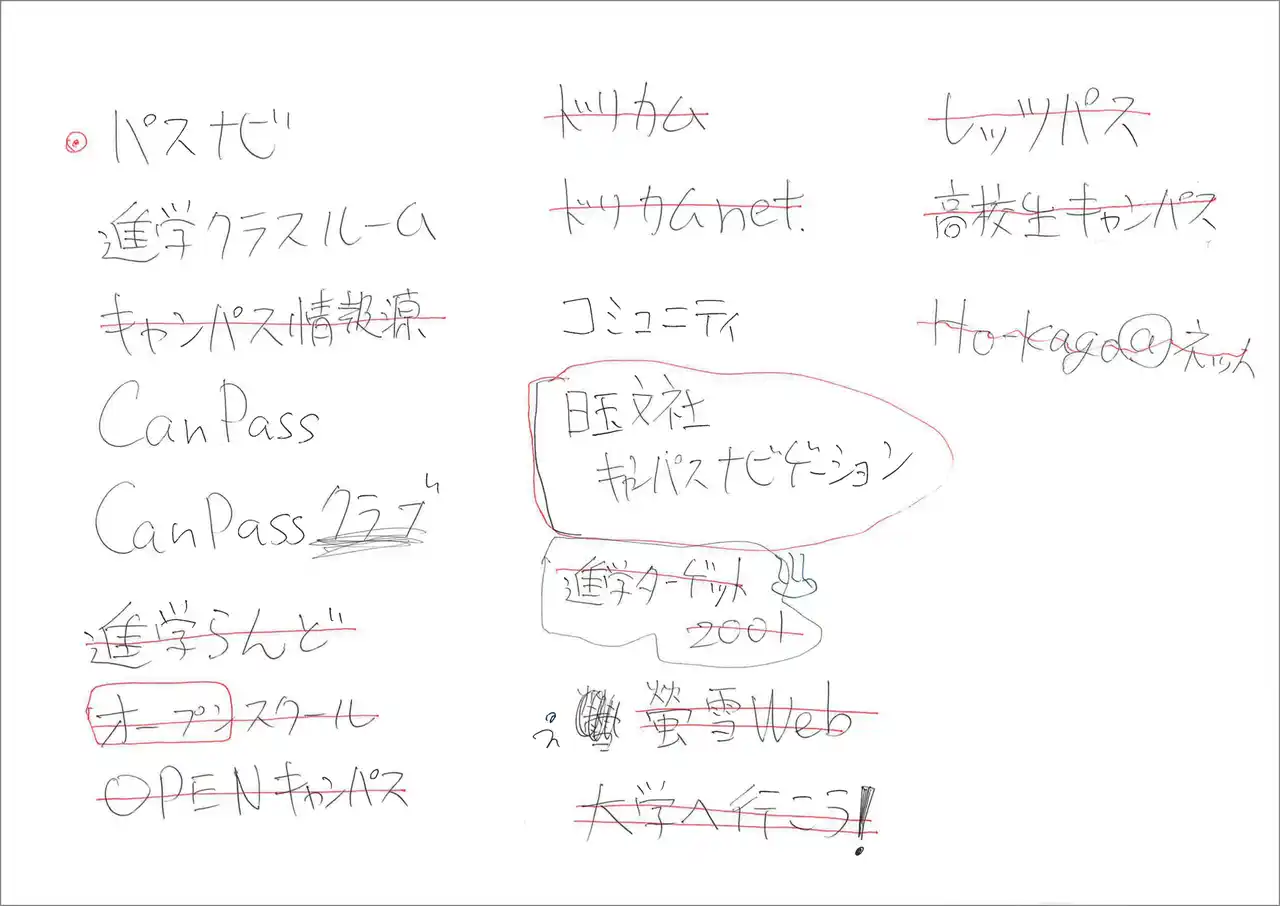 パスナビ
進学クラスルーム
キャンパス情報源
CanPass
CanPassクラブ
進学らんど
オープンスクール
OPENキャンパス
ドリカム
ドリカムnet.
コミュニティ
旺文社
キャンパスナビゲーション
進学ターゲット
2001
蛍雪Web
大学へ行こう!
レッツパス
高校生キャンパス
Ho-kago@ネット